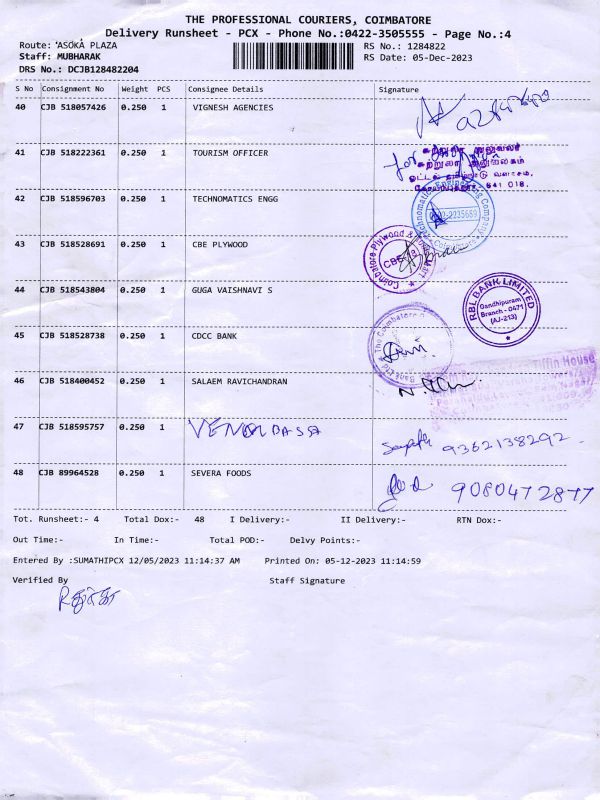 THE PROFESSIONAL COURIERS, COIMBATORE
Delivery Runsheet - PCX - Phone No.:0422-3505555 - Page No.:4
Route: ASOKA PLAZA
RS No.: 1284822
Staff: MUBHARAK
RS Date: 05-Dec-2023
DRS No.: DCJB128482204
S No Consignment No Weight PCS Consignee Details Signature
40 CJB 518057426 0.250 1 VIGNESH AGENCIES
41 CJB 518222361 0.250 1 TOURISM OFFICER
சுற்றுலா அலுவலர்
சுற்றுலா அலுவலகம்
ஓட்டல் தமிழ்நாடு வளாகம்,
641 018.
42 CJB 518596703 0.250 1 TECHNOMATICS ENGG
Technomatic Engineering Company
Coimbatore
43 CJB 518528691 0.250 1 CBE PLYWOOD
Coimbatore Plywood &
CBE
44 CJB 518543804 0.250 1 GUGA VAISHNAVI S
RBL BANK LIMITED
Gandhipuram
Branch - 0471
(AJ-213)
45 CJB 518528738 0.250 1 CDCC BANK
The Coimbatore
Bank Ltd
46 CJB 518400452 0.250 1 SALAEM RAVICHANDRAN
Tiffin House
47 CJB 518595757 0.250 1 9362138292
48 CJB 89964528 0.250 1 SEVERA FOODS 9080472877
Tot. Runsheet:- 4 Total Dox:- 48 I Delivery:- II Delivery:- RTN Dox:-
Out Time:- In Time:- Total POD:- Delvy Points:-
Entered By :SUMATHIPCX 12/05/2023 11:14:37 AM Printed On: 05-12-2023 11:14:59
Verified By Staff Signature